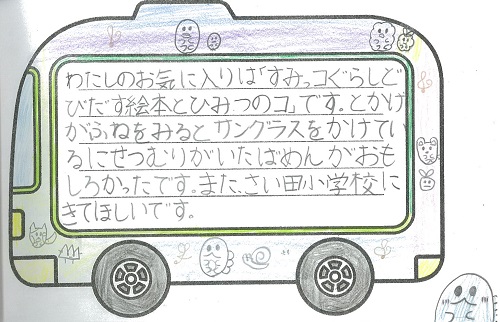 わたしのお気に入りは「すみっコぐらしと
びだす絵本とひみつのコ」です。とかげ
がふねをみるとサングラスをかけてい
るにせつむりがいたばめんがおも
しろかったです。また、さい田小学校に
きてほしいです。